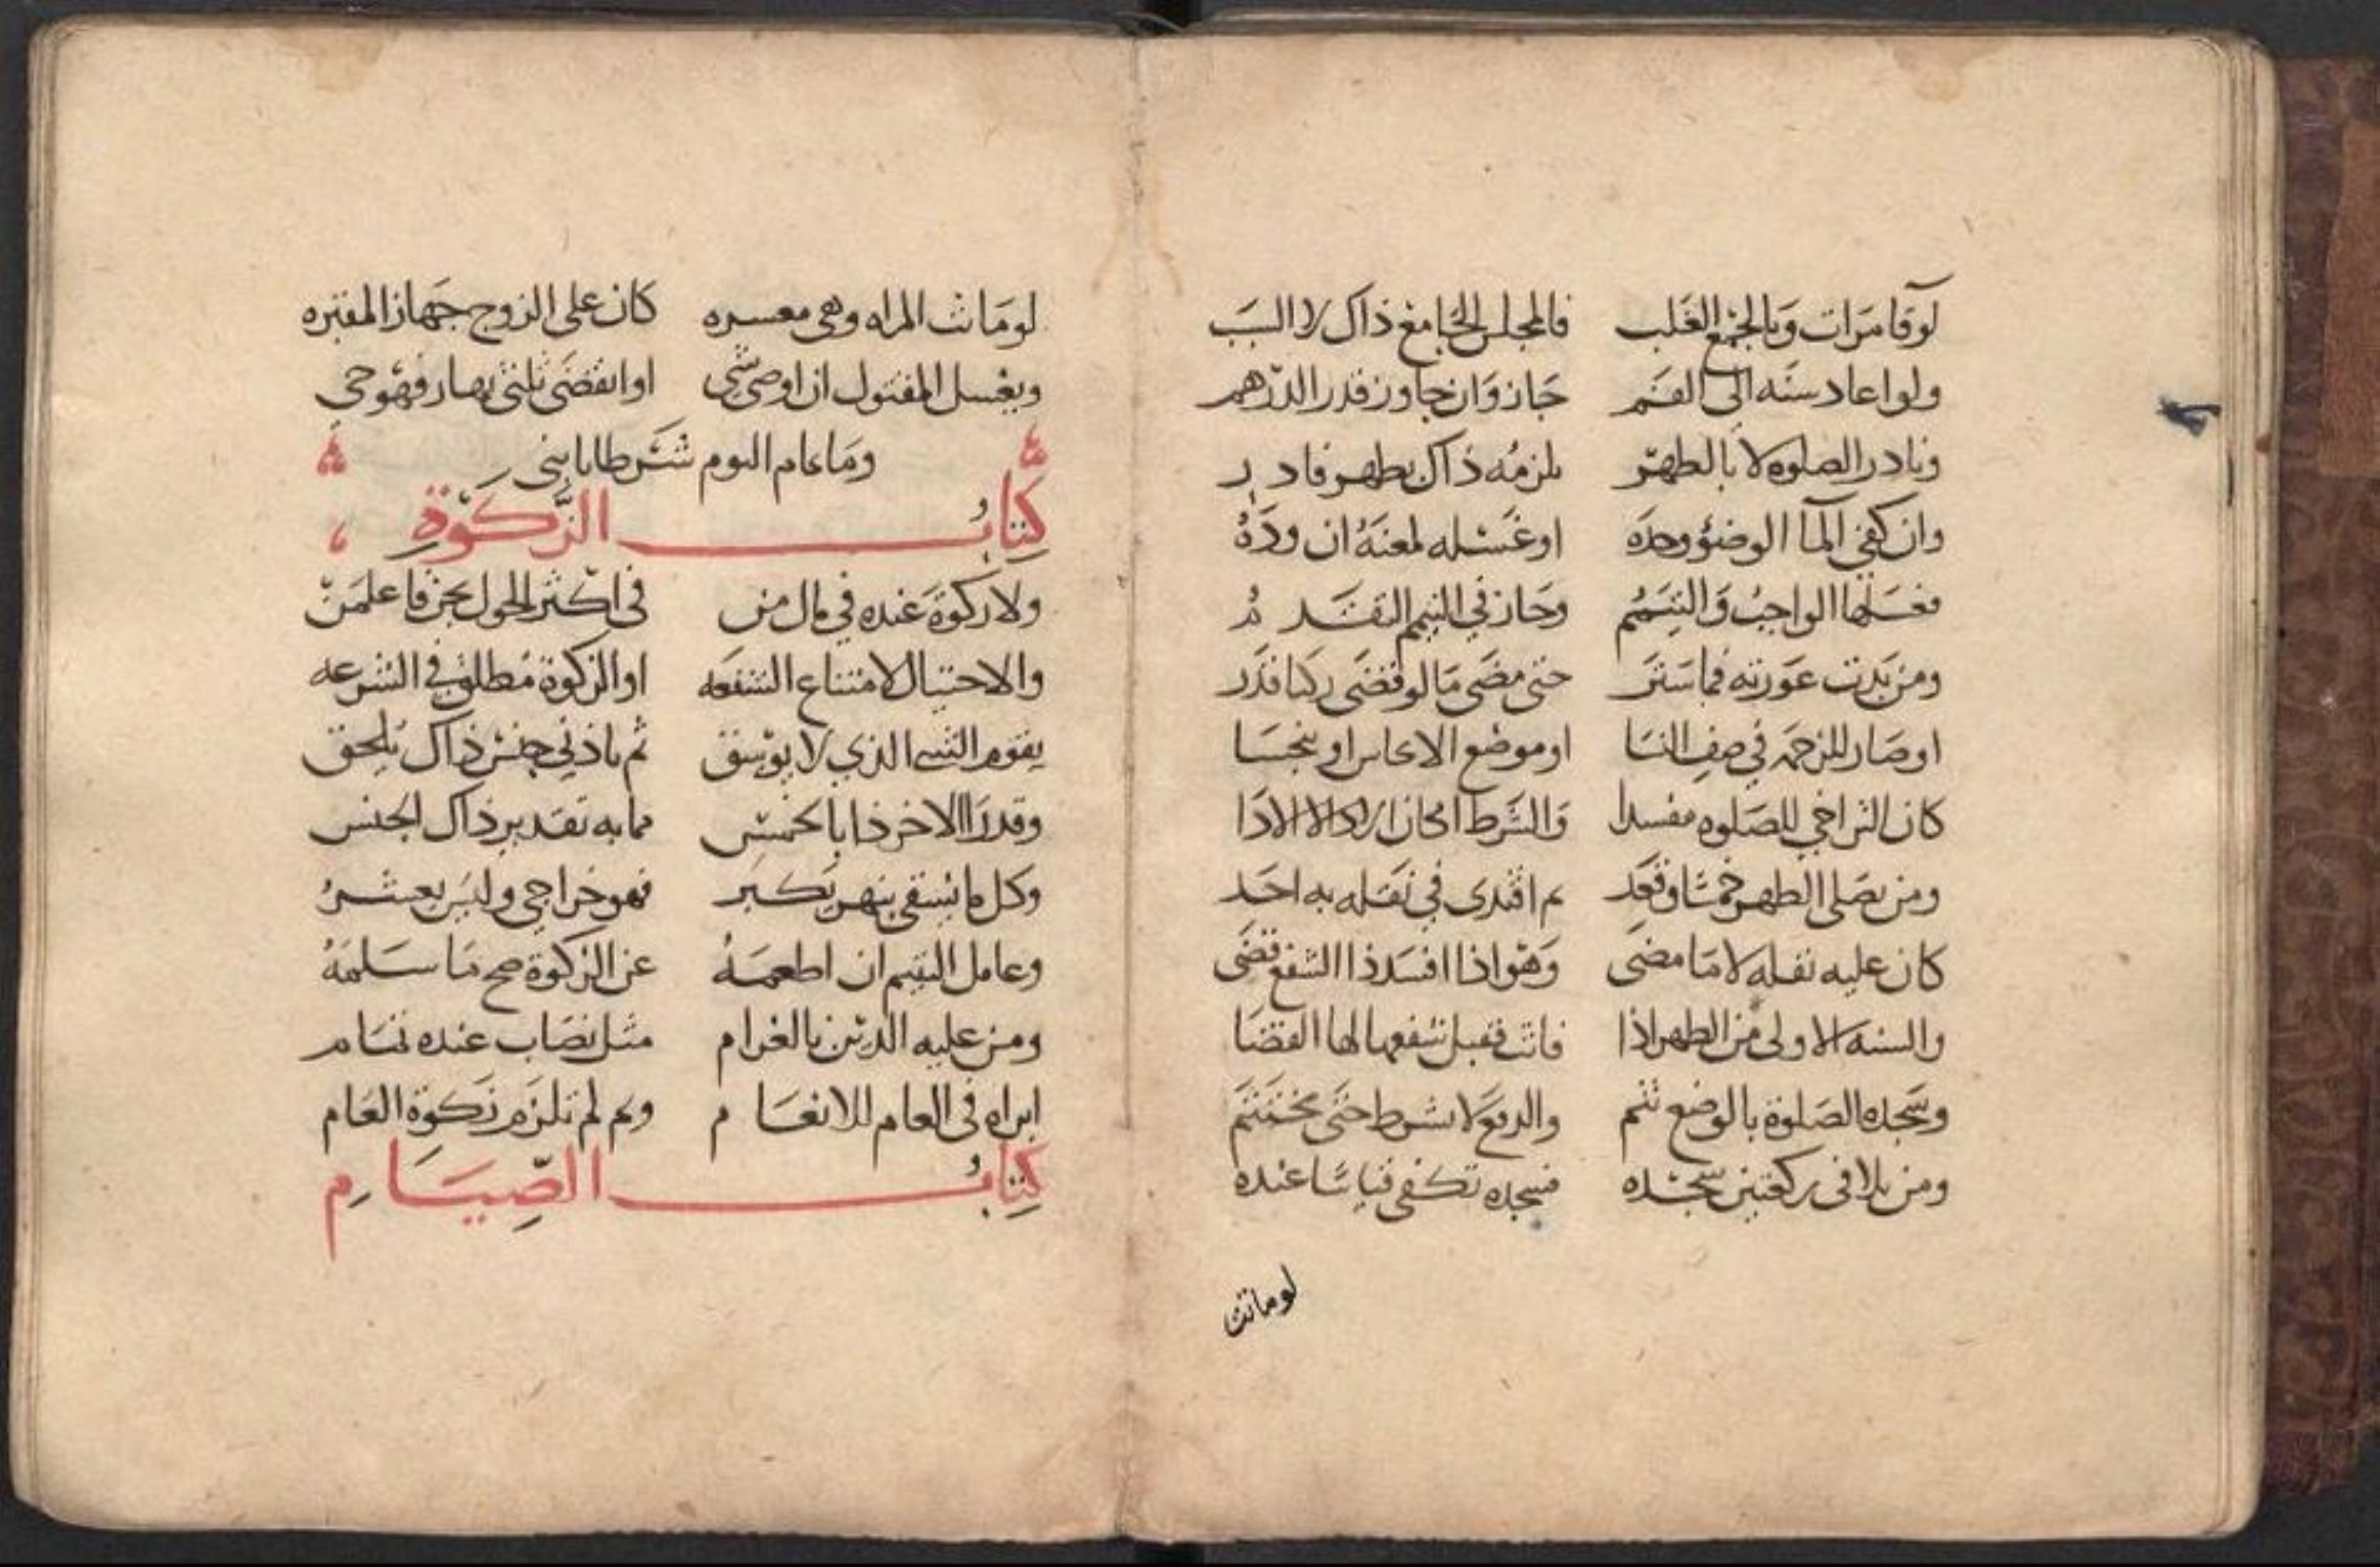 لو قا مرات وبالجمع الغلب فالمجلس الجامع ذاك لا السبب
ولو اعاد سنه الى الفم جاز وان جاوز قدر الدرهم
ونادر الصلوه لا بالطهر يلزمه ذاك بطهر قادر
وان كفى الما الوضؤ وحده او غسله لمعنه ان وده
فغسلها الواجب والتيمم وجاز في التيمم التقدم
ومن بدت عورته فما ستر حتى مضى ما لو قضى ركنا قدر
او صار للزحمه في صف النسا او موضع الامام او نجسا
كان التراخي للصلوه مفسدا والشرط
ومن يصلي الظهر خمسا وقعد ثم اقتدى في نفله به احد
كان عليه نفله لا ما مضى وهو اذا افسد ذا الشفع قضى
والسنه الاولى من الظهر اذا فاتت فقبل شفعها لها القضا
وسجده الصلوة بالوضع تتم والرفع لا بشرط حتى تختتم
ومن تلا في ركعتين سجده فسجده تكفي قياسا عنده
لو ماتت
لو ماتت المراه وهي معسره كان على الزوج جهاز المقبره
ويغسل المقتول ان اوصى بشي او انقضى ثلثي نهار فهو حي
وما عام اليوم شرطا يا بني
كتاب الزكوة
ولا زكوة عنده في مال من في اكثر الحول يجن فاعلمن
والاحتيال لامتناع الشفعه او الزكوة مطلق في الشرعه
يقوم الشي الذي لا يوسق ثم باذني جنس ذاك يلحق
وقدر الاخر ذا بالخمس مما به تقدير ذاك الجنس
وكل ما يسقى بنهر يكبر فهو خراجي وليس يعشر
وعامل اليتيم ان اطعمه عن الزكوة صح ما سلمه
ومن عليه الدين بالغرام مثل نصاب عنده تمام
ابراه في العام للانعام وتم لم تلزم زكوة العام
كتاب الصيام